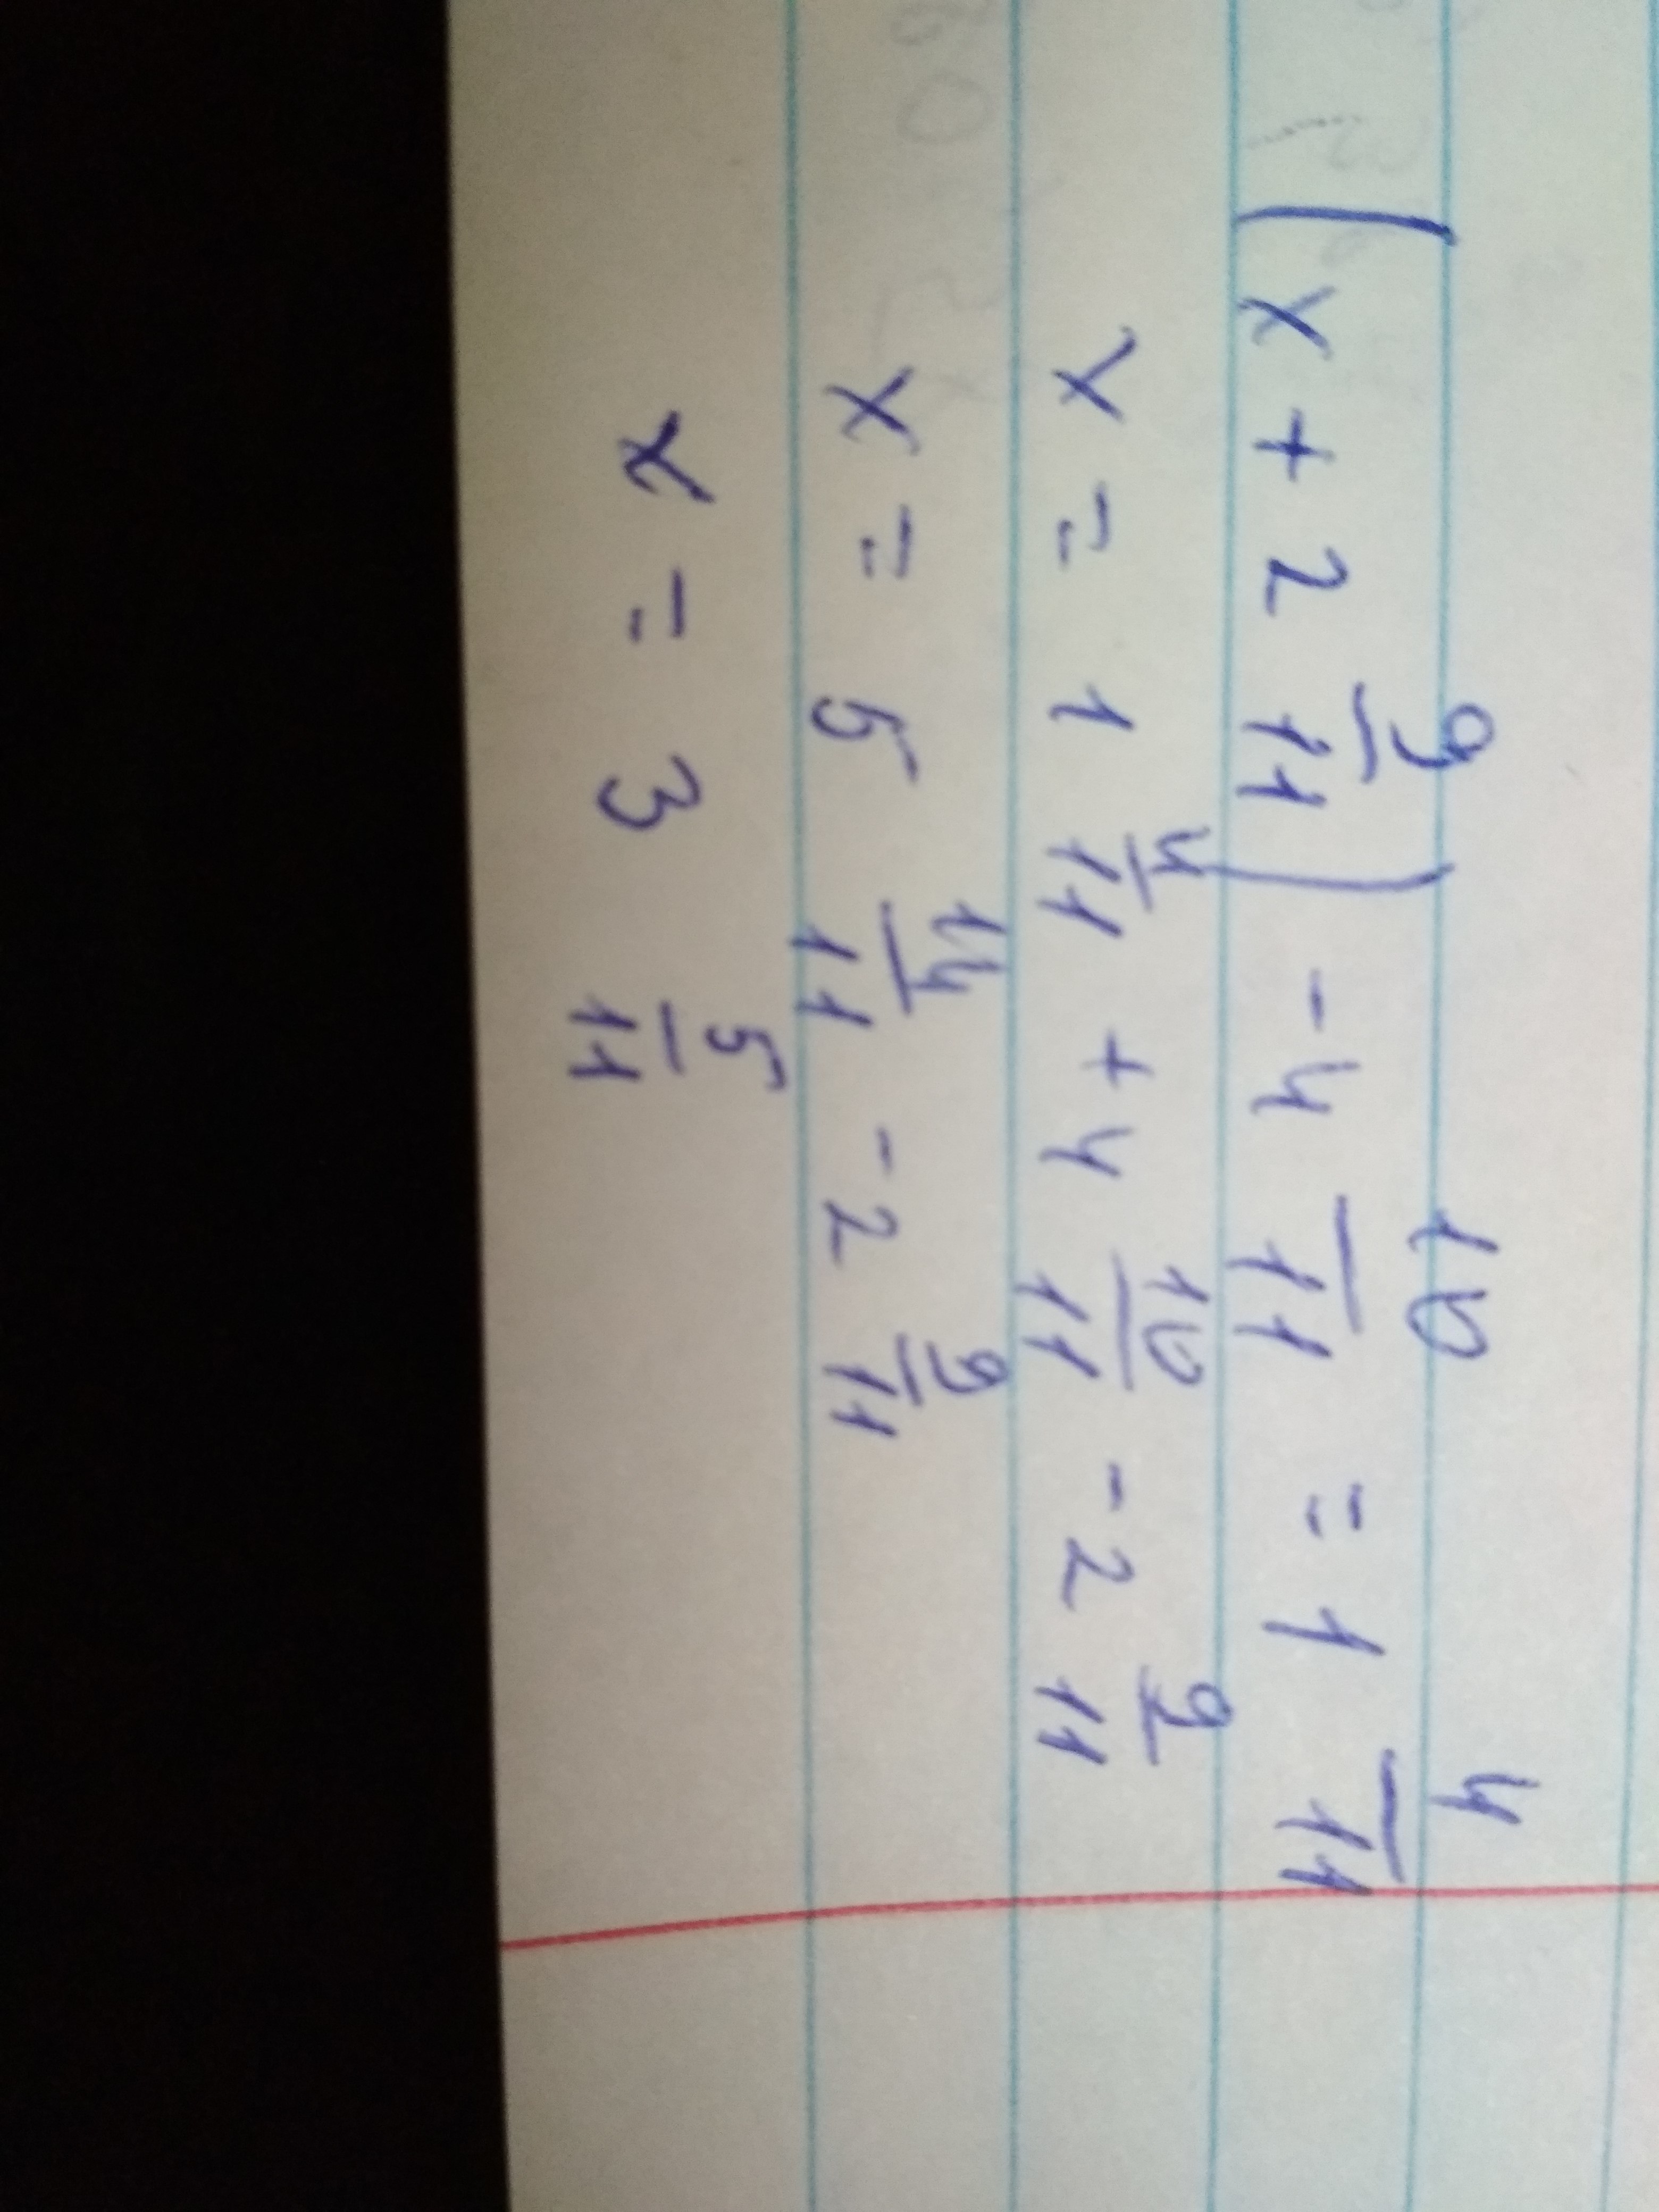 (x + 2 9/11) - 4 10/11 = 1 4/11
x = 1 4/11 + 4 10/11 - 2 9/11
x = 5 14/11 - 2 9/11
x = 3 5/11